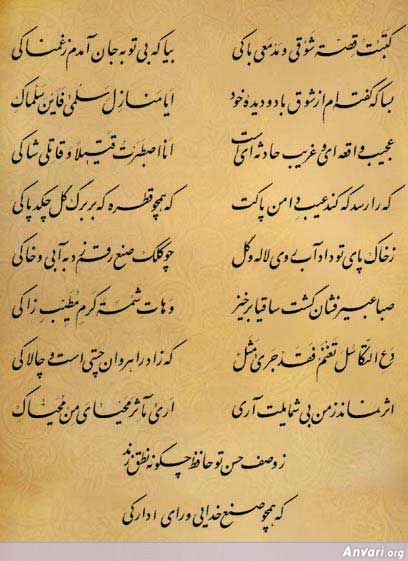 کتبت قصة شوقی و مدمعی باکی بیا که بی تو به جان آمدم ز غمناکی
بسا که گفته‌ام از شوق با دو دیده خود ایا منازل سلمی فاین سلماک
عجیب واقعه‌ای و غریب حادثه‌ای است انا اصطبرت قتیلا و قاتلی شاکی
که را رسد که کند عیب دامن پاکت که همچو قطره که بر برگ گل چکد پاکی
ز خاک پای تو داد آب روی لاله و گل چو کلک صنع رقم زد به آبی و خاکی
صبا عبیرفشان گشت ساقیا برخیز و هات شمسة کرم مطیب زاکی
دع التکاسل تغنم فقد جری مثل که زاد راهروان چستی است و چالاکی
اثر نماند ز من بی شمایلت آری اری مآثر محیای من محیاک
ز وصف حسن تو حافظ چگونه نطق زند
که همچو صنع خدایی ورای ادراکی
Anvari.org